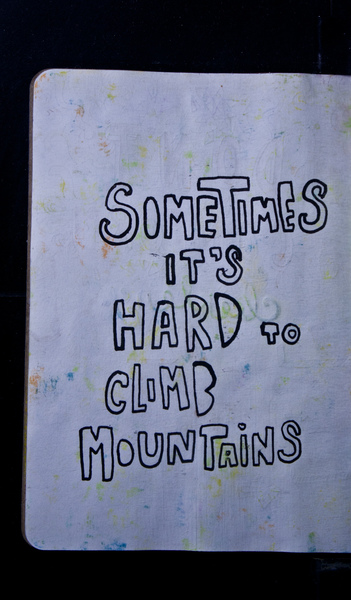 SOMETIMES
IT'S
HARD TO
CLIMB
MOUNTAINS